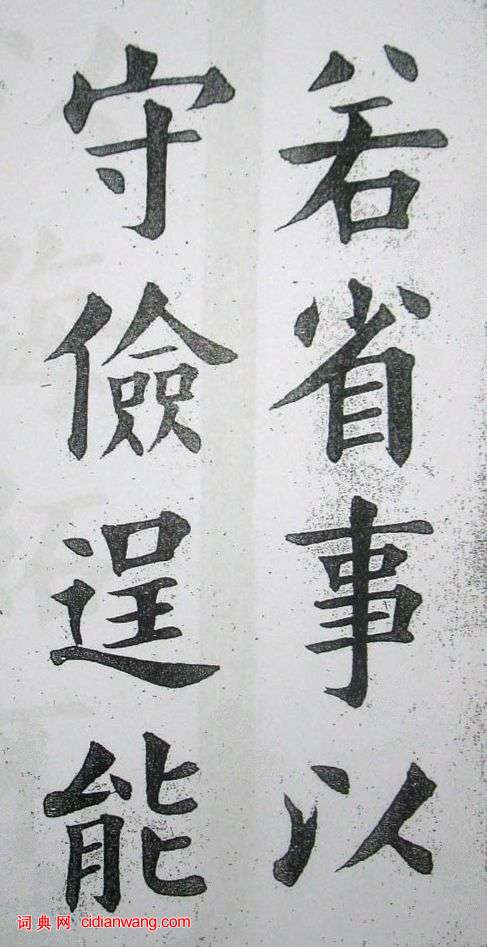 若省事以
守儉逞能
词典网 cidianwang.com